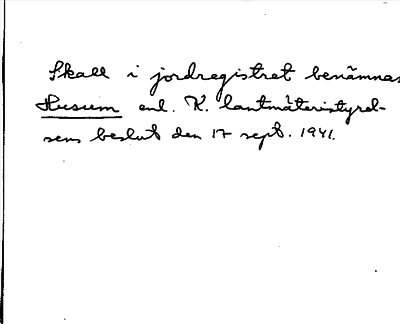 Skall i jordregistret benämnas
Husum enl. K. lantmäteristyrel-
sens beslut den 17 sept. 1941.